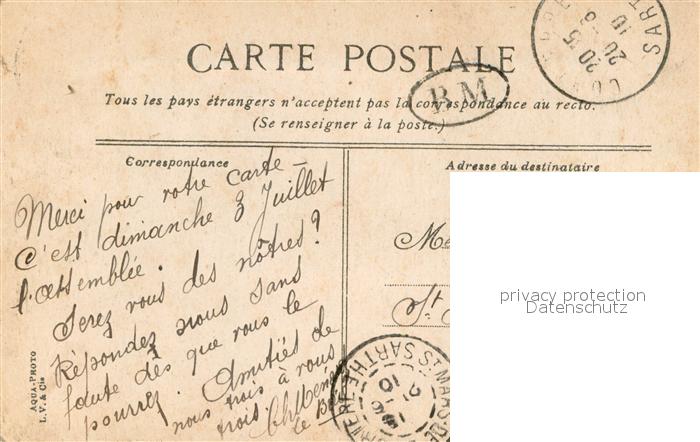 CARTE POSTALE
Tous les pays étrangers n'acceptent pas la correspondance au recto.
(Se renseigner à la poste.)
B M
SART
Correspondance
Adresse du destinataire
Merci pour votre carte –
C'est dimanche 3 Juillet
l'assemblée.
Serez vous des nôtres?
Répondez nous sans
faute dès que vous le
pourrez. Amitiés de
nous trois à vous
trois.
St
SARTHE
AQUA-PHOTO
L. V. & Cie
privacy protection
Datenschutz